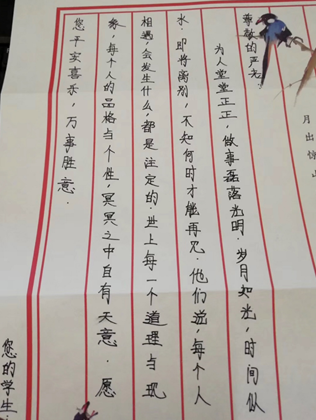 月出惊山
尊敬的严老:
为人堂堂正正，做事磊落光明．岁月如光，时间似
水．即将离别，不知何时才能再见．他们说，每个人
相遇，会发生什么，都是注定的．世上每一个道理与现
象，每个人的品格与个性，冥冥之中自有天意．愿
您平安喜乐，万事胜意．
您的学生: